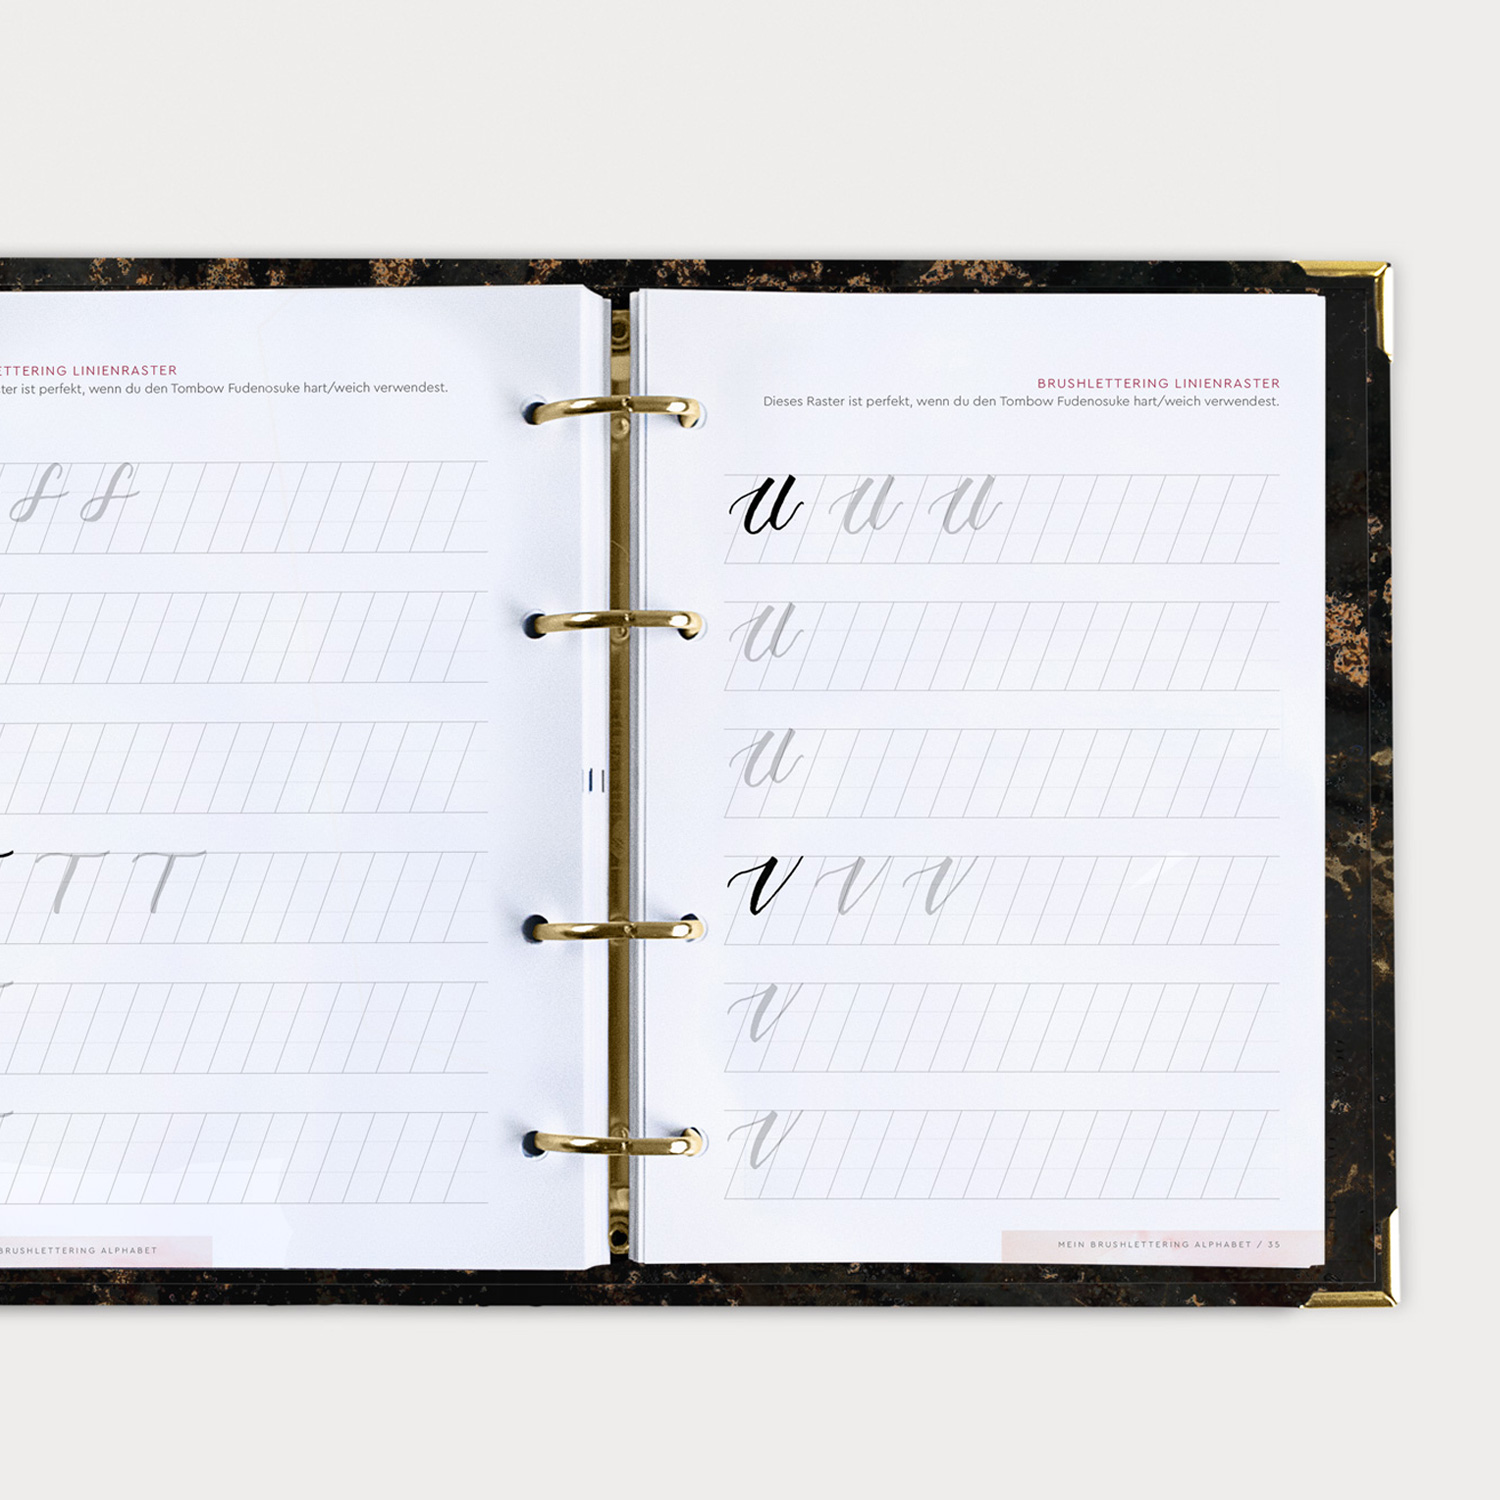 ETTERING LINIENRASTER
ter ist perfekt, wenn du den Tombow Fudenosuke hart/weich verwendest.
S S
T T T
BRUSHLETTERING ALPHABET
BRUSHLETTERING LINIENRASTER
Dieses Raster ist perfekt, wenn du den Tombow Fudenosuke hart/weich verwendest.
U U U
U
U
V V V
V
V
MEIN BRUSHLETTERING ALPHABET / 35